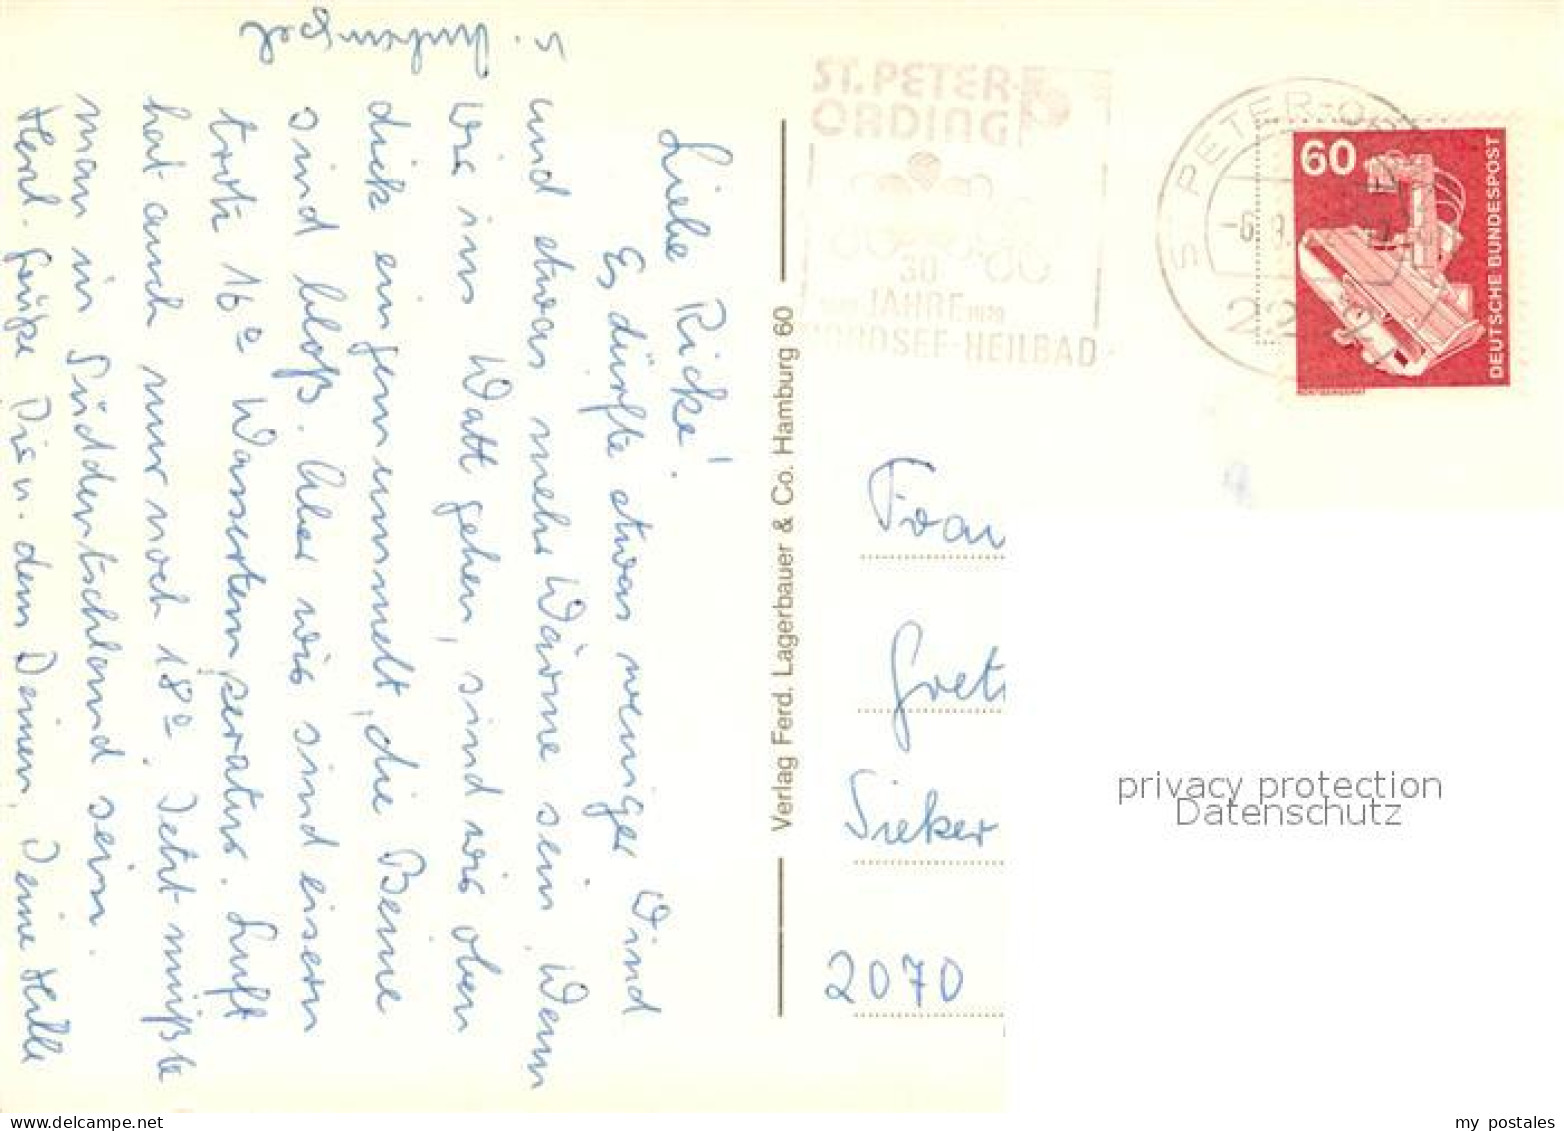 Liebe Ricke!
Es dürfte etwas weniger Wind
und etwas mehr Wärme sein. Wenn
wir ins Watt gehen, sind wir oben
dick eingemummelt, die Beine
sind bloß. Aber wir sind eisern
trotz 16° Wassertemperatur. Luft
hat auch nur noch 18°. Jetzt müßte
man in Süddeutschland sein.
Herzl. Grüße Dir u. dem Deinen, Deine Hille
Verlag Ferd. Lagerbauer & Co. Hamburg 60
ST. PETER-
ORDING
30
JAHRE 1979
NORDSEE-HEILBAD
ST PETER-ORD
60
DEUTSCHE BUNDESPOST
Frau
Greti
Sieker
2070
privacy protection
Datenschutz
my postales